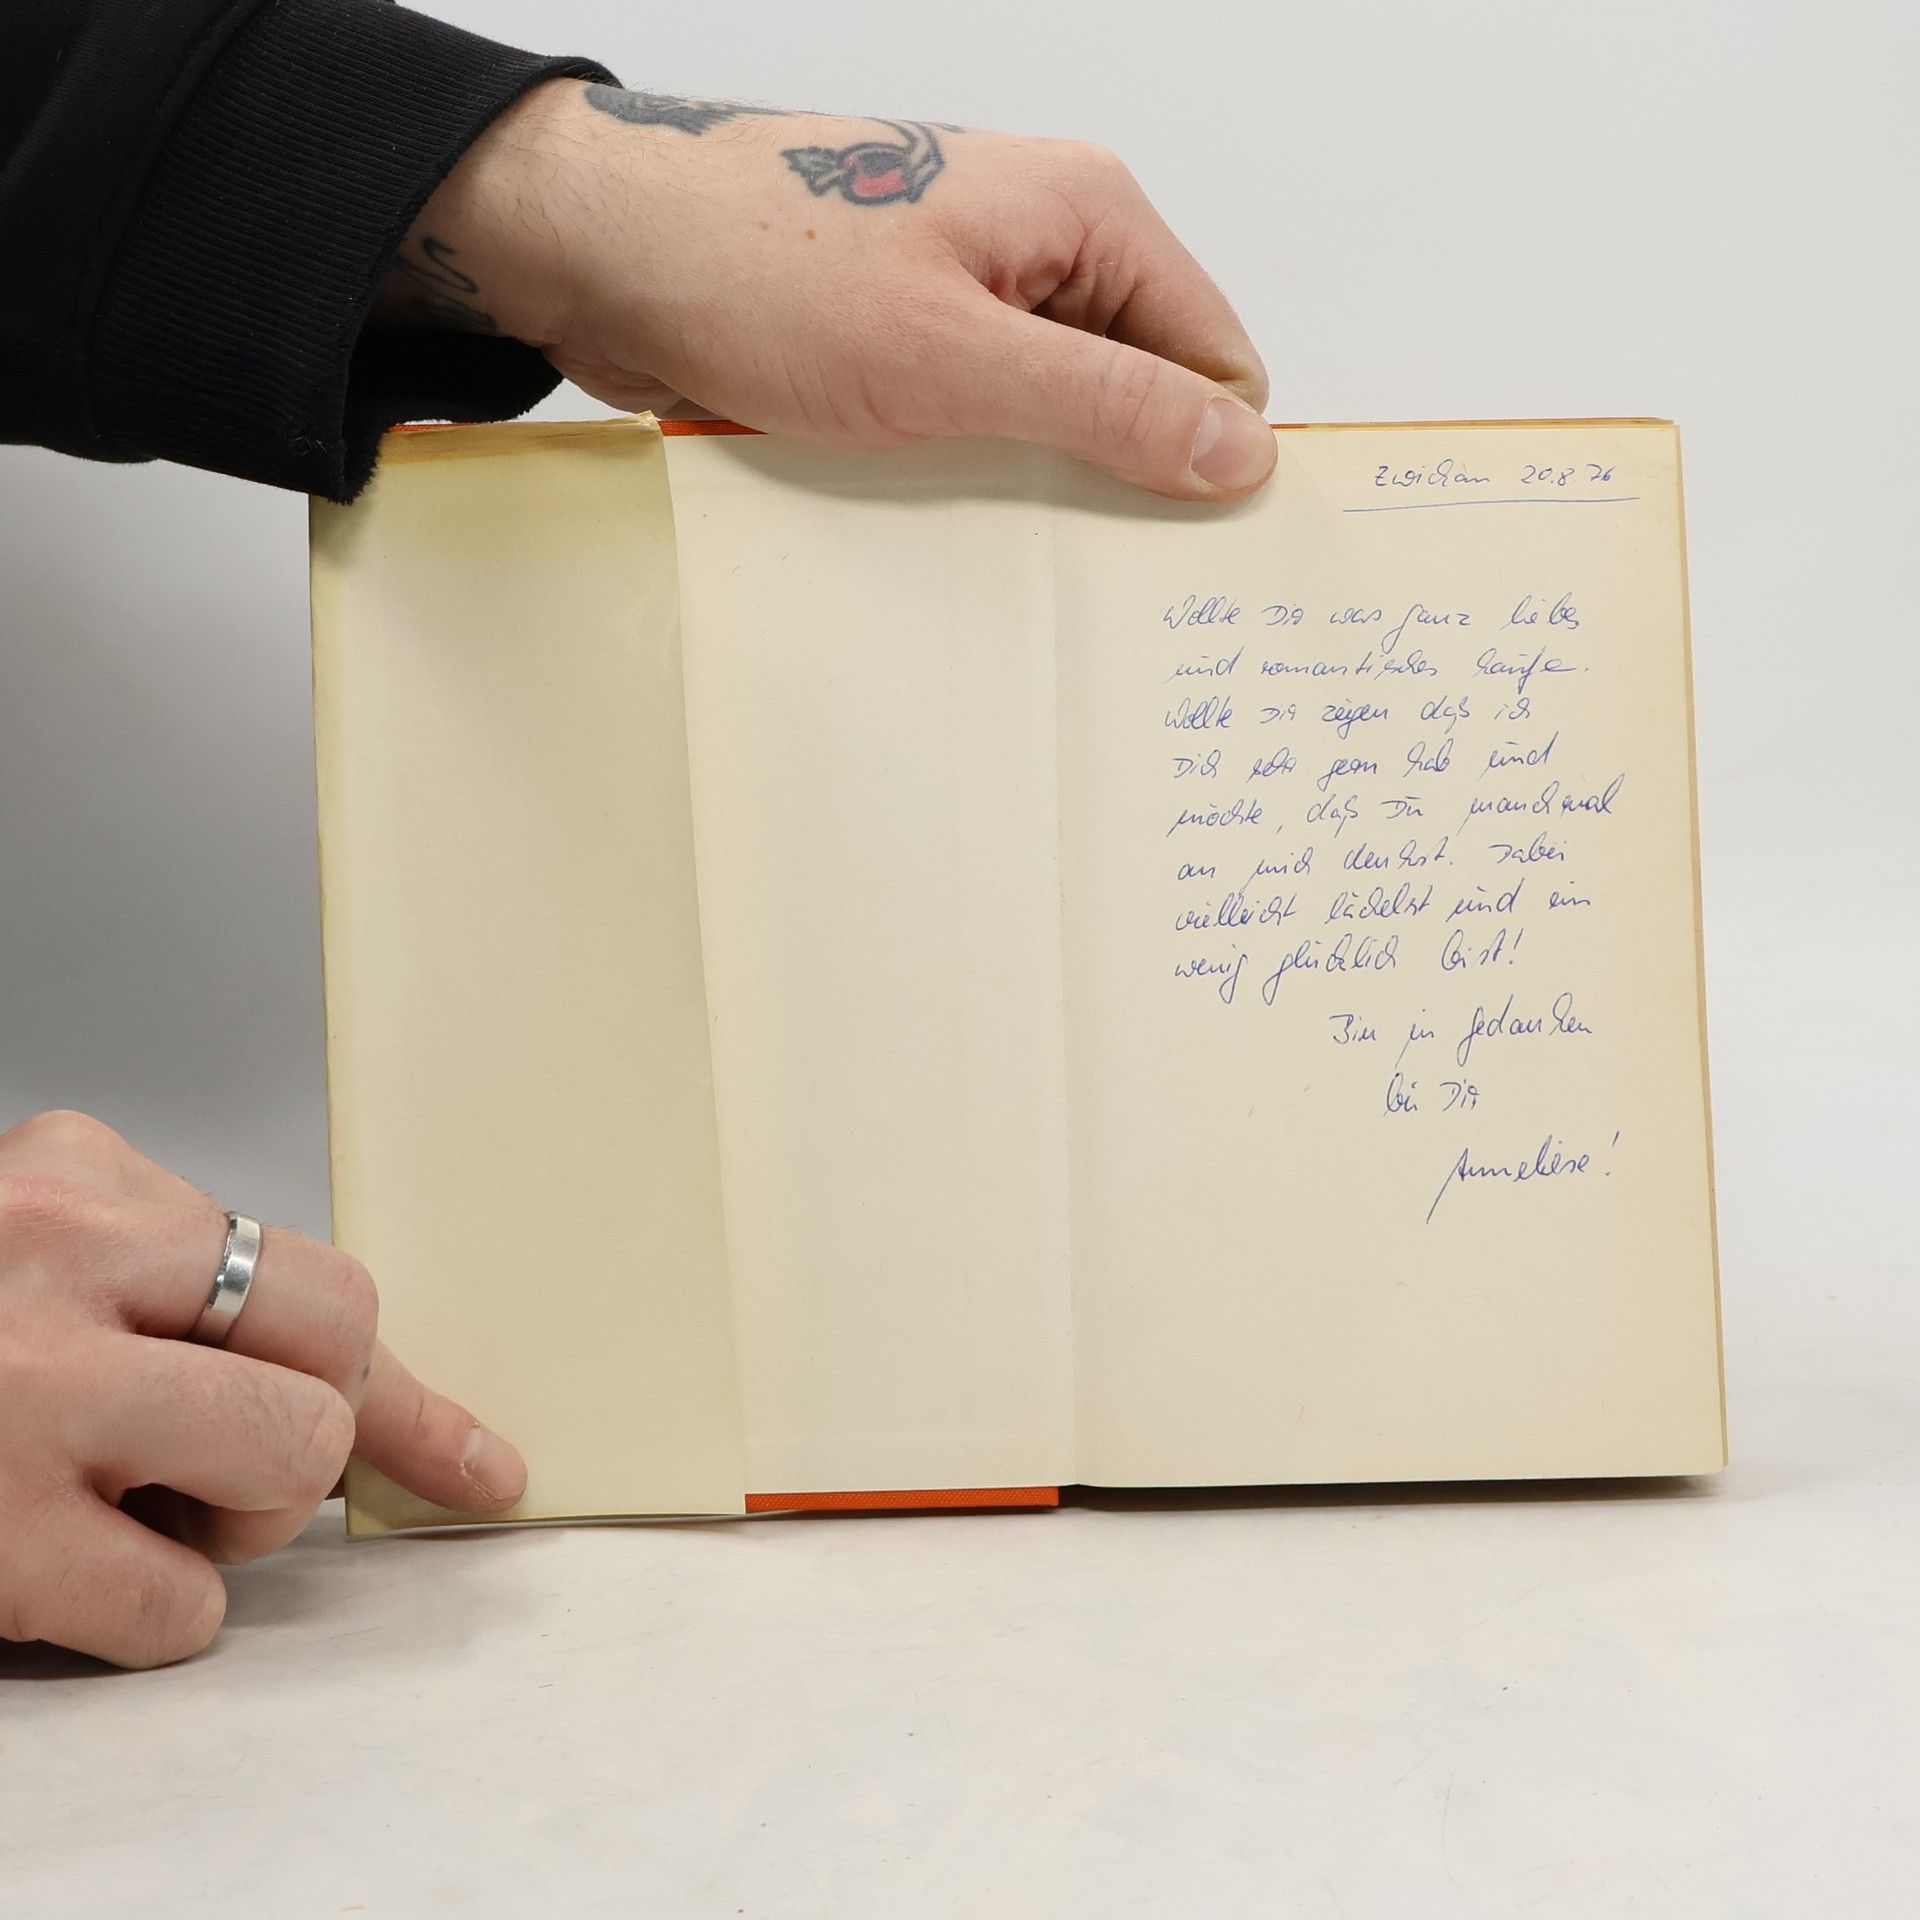 Zwickau 20.8.76
Wollte Dir was ganz liebes
und romantisches kaufen.
Wollte Dir zeigen daß ich
Dich sehr gern hab und
möchte, daß Du manchmal
an mich denkst. Dabei
vielleicht lächelst und ein
wenig glücklich bist!
Bin in Gedanken
bei Dir
Anneliese!